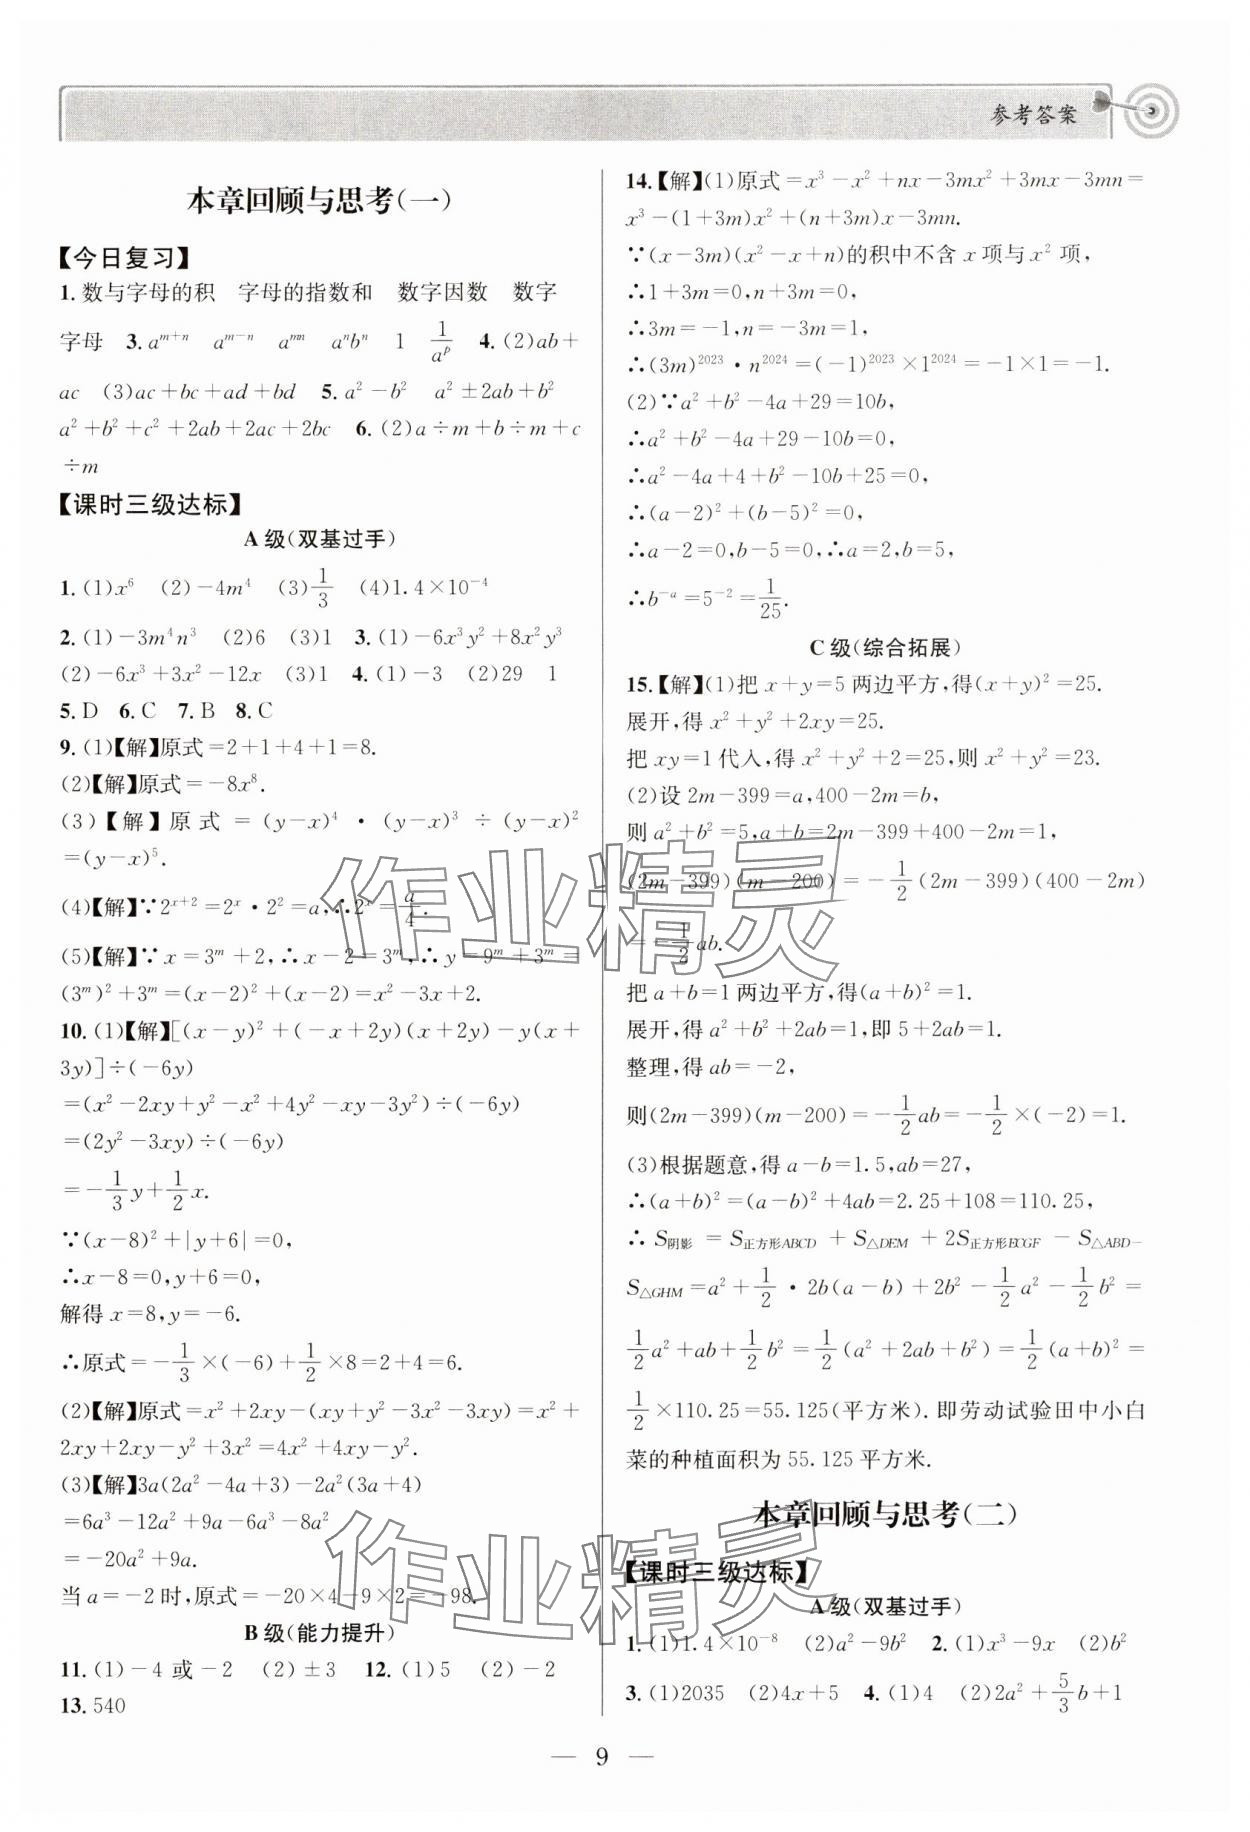 参考答案
本章回顾与思考(一)
【今日复习】
1.数与字母的积 字母的指数和 数字因数 数字
字母 3.a^{m+n} a^{m-n} a^{mn} a^n b^n 1 1/a^p 4.(2)ab+
ac (3)ac+bc+ad+bd 5.a²-b² a²±2ab+b²
a²+b²+c²+2ab+2ac+2bc 6.(2)a÷m+b÷m+c
÷m
【课时三级达标】
A级(双基过手)
1.(1)x⁶ (2)-4m⁴ (3)1/3 (4)1.4×10⁻⁴
2.(1)-3m⁴n³ (2)6 (3)1 3.(1)-6x³y²+8x²y³
(2)-6x³+3x²-12x (3)1 4.(1)-3 (2)29 1
5.D 6.C 7.B 8.C
9.(1)【解】原式=2+1+4+1=8.
(2)【解】原式=-8x⁸.
(3)【解】原式=(y-x)⁴·(y-x)³÷(y-x)²
=(y-x)⁵.
(4)【解】∵2^{x+2}=2^x·2²=a,∴2^x=a/4.
(5)【解】∵x=3^m+2,∴x-2=3^m,∴y=9^m+3^m=
(3^m)²+3^m=(x-2)²+(x-2)=x²-3x+2.
10.(1)【解】[(x-y)²+(-x+2y)(x+2y)-y(x+
3y)]÷(-6y)
=(x²-2xy+y²-x²+4y²-xy-3y²)÷(-6y)
=(2y²-3xy)÷(-6y)
=-1/3 y+1/2 x.
∵(x-8)²+|y+6|=0,
∴x-8=0,y+6=0,
解得x=8,y=-6.
∴原式=-1/3×(-6)+1/2×8=2+4=6.
(2)【解】原式=x²+2xy-(xy+y²-3x²-3xy)=x²+
2xy+2xy-y²+3x²=4x²+4xy-y².
(3)【解】3a(2a²-4a+3)-2a²(3a+4)
=6a³-12a²+9a-6a³-8a²
=-20a²+9a.
当a=-2时,原式=-20×4-9×2=-98.
B级(能力提升)
11.(1)-4或-2 (2)±3 12.(1)5 (2)-2
13.540
14.【解】(1)原式=x³-x²+nx-3mx²+3mx-3mn=
x³-(1+3m)x²+(n+3m)x-3mn.
∵(x-3m)(x²-x+n)的积中不含x项与x²项,
∴1+3m=0,n+3m=0,
∴3m=-1,n=-3m=1,
∴(3m)²⁰²³·n²⁰²⁴=(-1)²⁰²³×1²⁰²⁴=-1×1=-1.
(2)∵a²+b²-4a+29=10b,
∴a²+b²-4a+29-10b=0,
∴a²-4a+4+b²-10b+25=0,
∴(a-2)²+(b-5)²=0,
∴a-2=0,b-5=0,∴a=2,b=5,
∴b^{-a}=5⁻²=1/25.
C级(综合拓展)
15.【解】(1)把x+y=5两边平方,得(x+y)²=25.
展开,得x²+y²+2xy=25.
把xy=1代入,得x²+y²+2=25,则x²+y²=23.
(2)设2m-399=a,400-2m=b,
则a²+b²=5,a+b=2m-399+400-2m=1,
(2m-399)(m-200)=-1/2(2m-399)(400-2m)
=-1/2 ab.
把a+b=1两边平方,得(a+b)²=1.
展开,得a²+b²+2ab=1,即5+2ab=1.
整理,得ab=-2,
则(2m-399)(m-200)=-1/2 ab=-1/2×(-2)=1.
(3)根据题意,得a-b=1.5,ab=27,
∴(a+b)²=(a-b)²+4ab=2.25+108=110.25,
∴S阴影=S正方形ABCD+S△DEM+2S正方形ECGF-S△ABD-
S△GHM=a²+1/2·2b(a-b)+2b²-1/2 a²-1/2 b²=
1/2 a²+ab+1/2 b²=1/2(a²+2ab+b²)=1/2(a+b)²=
1/2×110.25=55.125(平方米).即劳动试验田中小白
菜的种植面积为55.125平方米.
本章回顾与思考(二)
【课时三级达标】
A级(双基过手)
1.(1)1.4×10⁻⁸ (2)a²-9b² 2.(1)x³-9x (2)b²
3.(1)2035 (2)4x+5 4.(1)4 (2)2a²+5/3 b+1
— 9 —
作业精灵
作业精灵